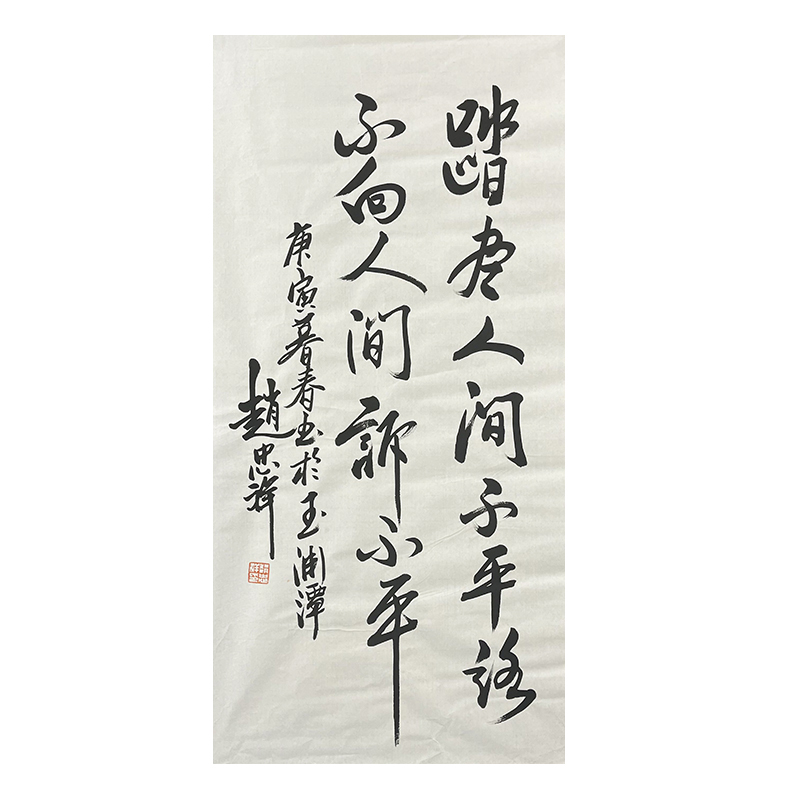 踏尽人间不平路
不向人间訴不平
庚寅暮春书於玉渊潭
趙忠祥